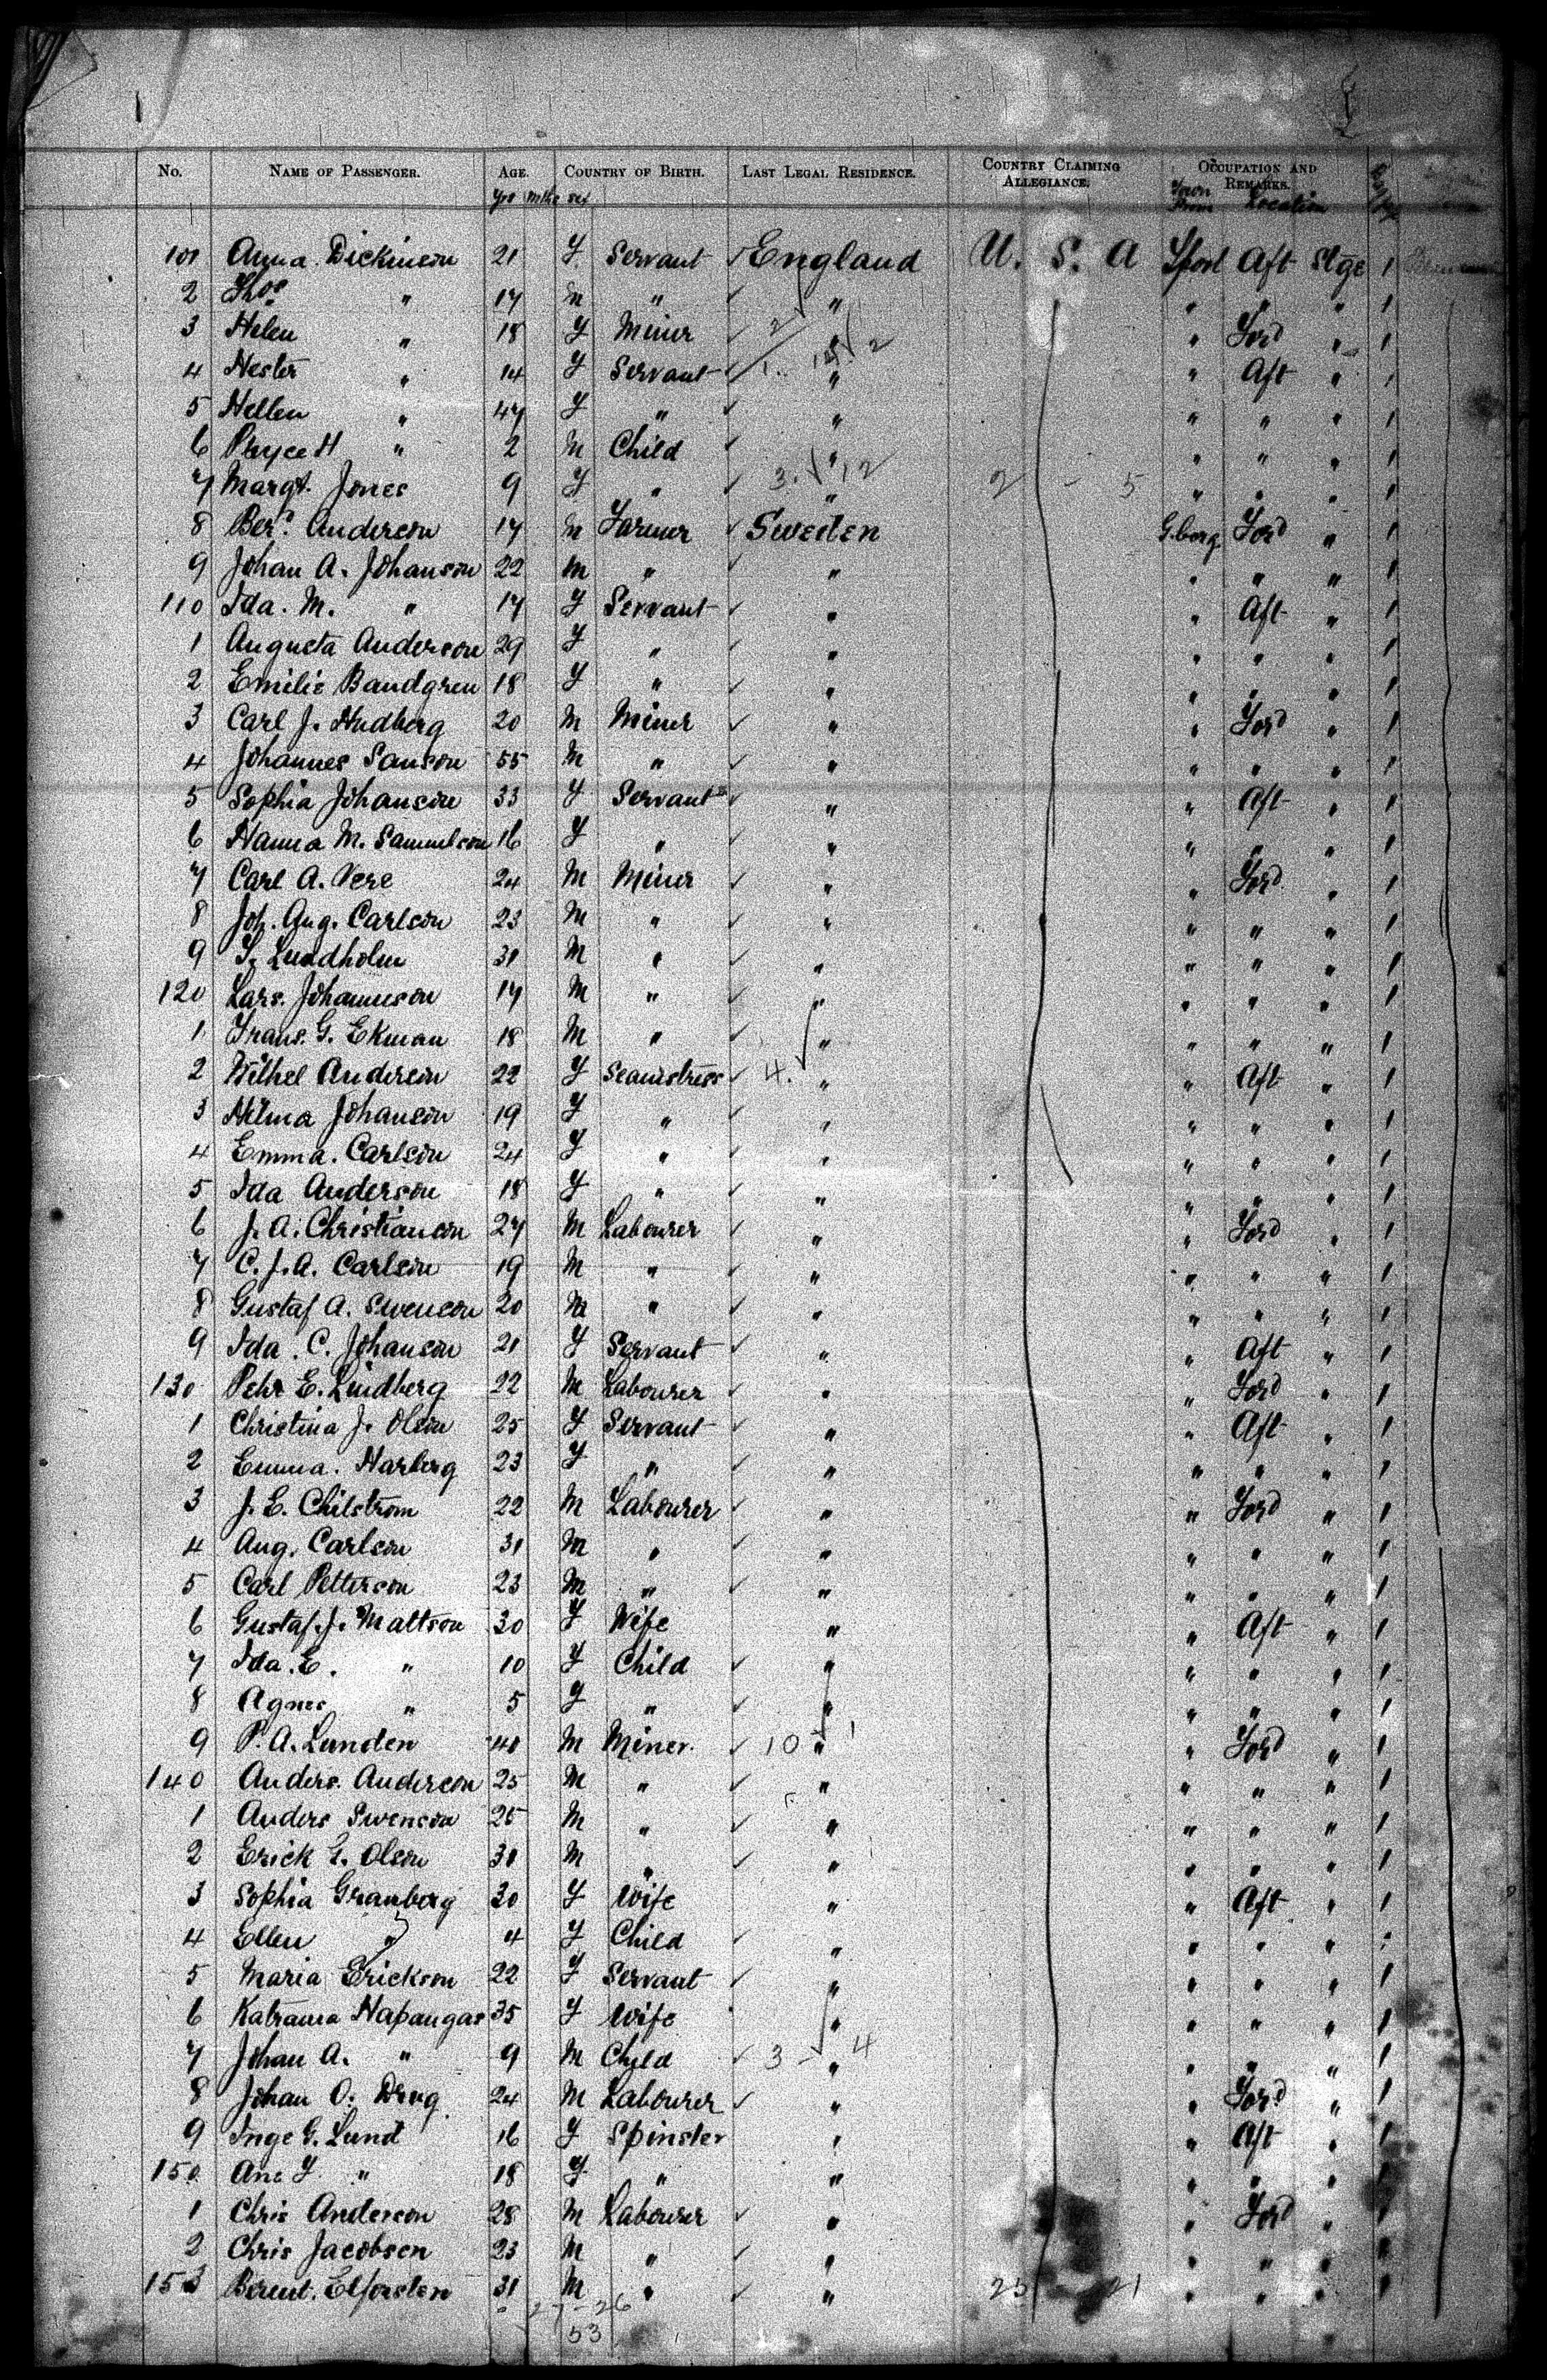 No. NAME OF PASSENGER. AGE. COUNTRY OF BIRTH. LAST LEGAL RESIDENCE. COUNTRY CLAIMING ALLEGIANCE. OCCUPATION AND REMARKS.
Yrs Mths sex Town From Location
101 Anna Dickinson 21 F Servant ✓ England U. S. A Lpool Aft Stge 1
2 Thos " 17 m " ✓ " " " " 1
3 Helen " 18 F Miner ✓ " " Ford " 1
4 Hester " 14 F Servant ✓ " " Aft " 1
5 Hellen " 47 F " ✓ " " " " 1
6 H " 2 M Child ✓ " " " " 1
7 Margt. Jones 9 F " ✓ " 2 - 5 " " " 1
8 Berd. Anderson 17 m Farmer ✓ Sweden G.borg Ford " 1
9 Johan A. Johanson 22 m " ✓ " " " " 1
110 Ida. M. " 17 F Servant ✓ " " Aft " 1
1 Augusta Anderson 29 F " ✓ " " " " 1
2 Emilie Bandgren 18 F " ✓ " " " " 1
3 Carl J. Hedberg 20 M Miner ✓ " " Ford " 1
4 Johannes Sanson 55 M " ✓ " " " " 1
5 Sophia Johanson 33 F Servant ✓ " " Aft " 1
6 Hanna M. Samuelson 16 F " ✓ " " " " 1
7 Carl A. Vere 24 M Miner ✓ " " Ford " 1
8 Joh. Aug. Carlson 23 M " ✓ " " " " 1
9 S. Lundholm 31 M " ✓ " " " " 1
120 Lars. Johannson 17 M " ✓ " " " " 1
1 Frans. G. Ekman 18 M " ✓ " " " " 1
2 Anderson 22 F Seamstress ✓ 4. " " Aft " 1
3 Hilma Johanson 19 F " ✓ " " " " 1
4 Emma. Carlson 24 F " ✓ " " " " 1
5 Ida Anderson 18 F " ✓ " " " " 1
6 J. A. Christianson 27 M Labourer ✓ " " Ford " 1
7 C. J. A. Carlson 19 M " ✓ " " " " 1
8 Gustaf A. Swenson 20 M " ✓ " " " " 1
9 Ida. C. Johanson 21 F Servant ✓ " " Aft " 1
130 Pehr E. Lindberg 22 M Labourer ✓ " " Ford " 1
1 Christina J. Olson 25 F Servant ✓ " " Aft " 1
2 Emma. Harberg 23 F " ✓ " " " " 1
3 J. E. Chilstrom 22 M Labourer ✓ " " Ford " 1
4 Aug. Carlson 31 M " ✓ " " " " 1
5 Carl Petterson 23 M " ✓ " " " " 1
6 Gustaf. J. Mattson 30 F Wife " " Aft " 1
7 Ida. E. " 10 F Child ✓ " " " " 1
8 Agnes " 5 F " ✓ " " " " 1
9 P. A. Lunden 40 M Miner. ✓ 10 " 1 " Ford " 1
140 Anders. Anderson 25 M " ✓ " " " " 1
1 Anders Swenson 25 M " ✓ " " " " 1
2 Erick G. Olson 31 M " ✓ " " " " 1
3 Sophia Granberg 30 F Wife " " Aft " 1
4 Ellen " 4 F Child ✓ " " " "
5 Maria Erickson 22 F Servant ✓ " " " " 1
6 Hapangas 35 F Wife " " " " 1
7 Johan A. " 9 M Child ✓ 3 - " 4 " " " 1
8 Johan O. 24 M Labourer ✓ " " Ford " 1
9 Inge G. Lund 16 F Spinster " " Aft " 1
150 Ane F " 18 F " " " " " 1
1 Chris Anderson 28 M Labourer ✓ " " Ford " 1
2 Chris Jacobsen 23 M " ✓ " " " " 1
153 Berent. 31 M " ✓ " 25 21 " " " 1
27 - 26
53